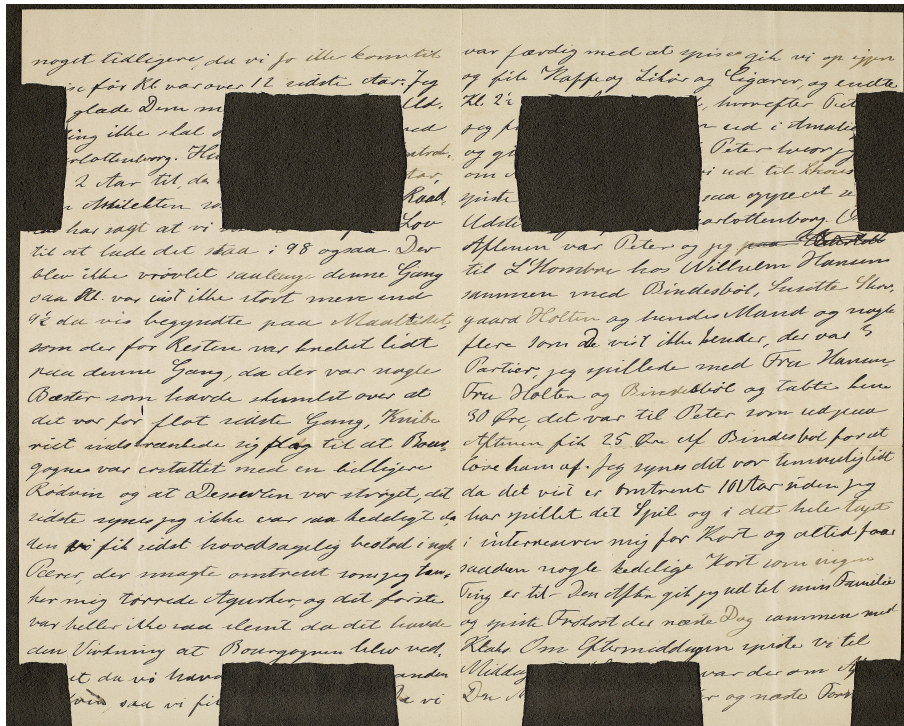 noget tidligere, da vi jo ikke kom til
før Kl. var over 12 sidste Aar. Jeg
glæde Dem m
ing ikke skal
rlottenborg. He
2 Aar til, da
Arkitekten Raad
har sagt at vi Lov
til at lade det staa i 98 ogsaa Der
blev ikke vrøvlet saalænge denne Gang
saa Kl. var vist ikke stort mere end
9½ da vi begyndte paa Maaltidet,
som der for Resten var knebet lidt
paa denne Gang, da der var nogle
Bæster som havde skumlet over at
det var for flot sidste Gang, Knibe
riet indskrænkede sig til at Bour-
gogne var erstattet med en billigere
Rødvin og at Desserten var strøget, det
sidste synes jeg ikke var saa kedeligt da
den vi fik sidst hovedsagelig bestod i nogle
Pærer, der smagte omtrent som jeg tæn-
ker mig tørrede Agurker, og det første
var heller ikke saa slemt da det havde
den Virkning at Bourgognen blev ved,
t da vi hav anden
vin, saa vi fi vi
var færdig med at spise gik vi op igen
og fik Kaffe og Likør og Cigarer, og endte
Kl. 2½ , hvorefter Piet
seg p n ud i Amalie
og gi Peter hvor j
om vi ud til Skovs
spiste saa oppe at se
Udsti arlottenborg. O
Aftenen var Peter og jeg
til L'Hombre hos Wilhelm Hansens
sammen med Bindesbøl, Susette Skov-
gaard Holten og hendes Mand og nogle
flere som De vist ikke kender, der var 3
Partier, jeg spillede med Fru Hansen,
Fru Holten og Bindesbøl og tabte kun
30 Øre, det var til Peter som ud paa
Aftenen fik 25 Øre af Bindesbøl for at
løse ham af. Jeg synes det var temmelig lidt
da det vist er omtrent 10 Aar siden jeg
har spillet det Spil og i det hele taget
i interreserer mig for Kort og altid faar
saadan nogle kedelige Kort som ingen
Ting er til. Den Aften gik jeg ud til min Familie
og spiste Frokost der næste Dag sammen med
Klaks. Om Eftermiddagen spiste vi til
Middag var der om Af
De og næste Form